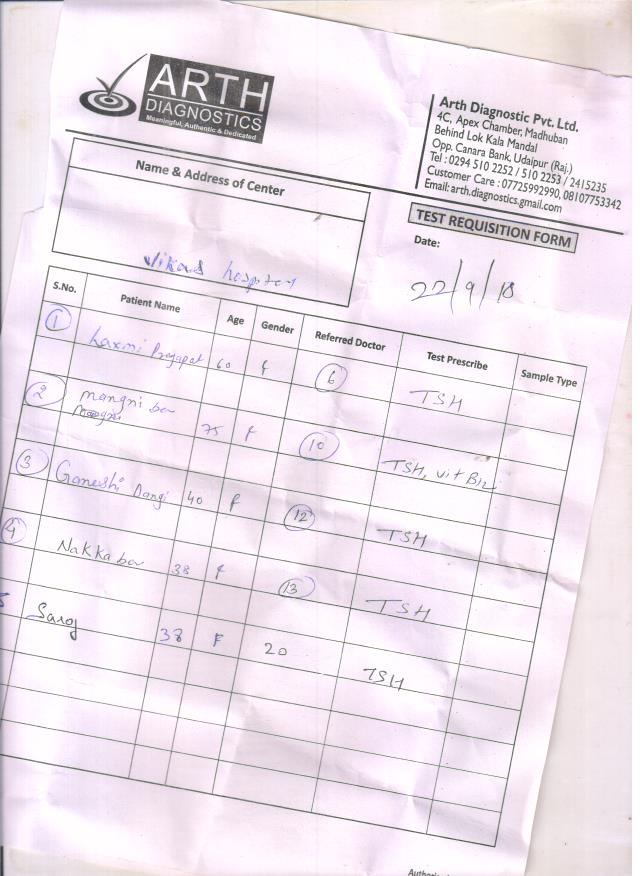 ARTH
DIAGNOSTICS
Meaningful, Authentic & Dedicated
Arth Diagnostic Pvt. Ltd.
4C, Apex Chamber, Madhuban
Behind Lok Kala Mandal
Opp. Canara Bank, Udaipur (Raj.)
Tel : 0294 510 2252 / 510 2253 / 2415235
Customer Care : 07725992990, 08107753342
Email: arth.diagnostics.gmail.com
Name & Address of Center
Vikas hospital
TEST REQUISITION FORM
Date:
22/9/18
S.No. Patient Name Age Gender Referred Doctor Test Prescribe Sample Type
1 Laxmi Prajapat 60 f 6 TSH
2 mangni bai 75 f 10 TSH, vit B12
3 Ganeshi Dangi 40 f 12 TSH
4 Nakka bai 38 f 13 TSH
5 Saroj 38 F 20 TSH